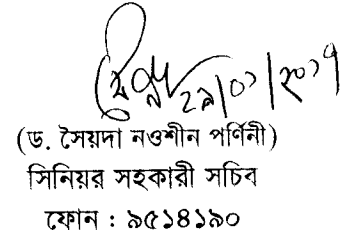 ২৯/০১/২০১৭
(ড. সৈয়দা নওশীন পর্ণিনী)
সিনিয়র সহকারী সচিব
ফোন : ৯৫১৪১৯০